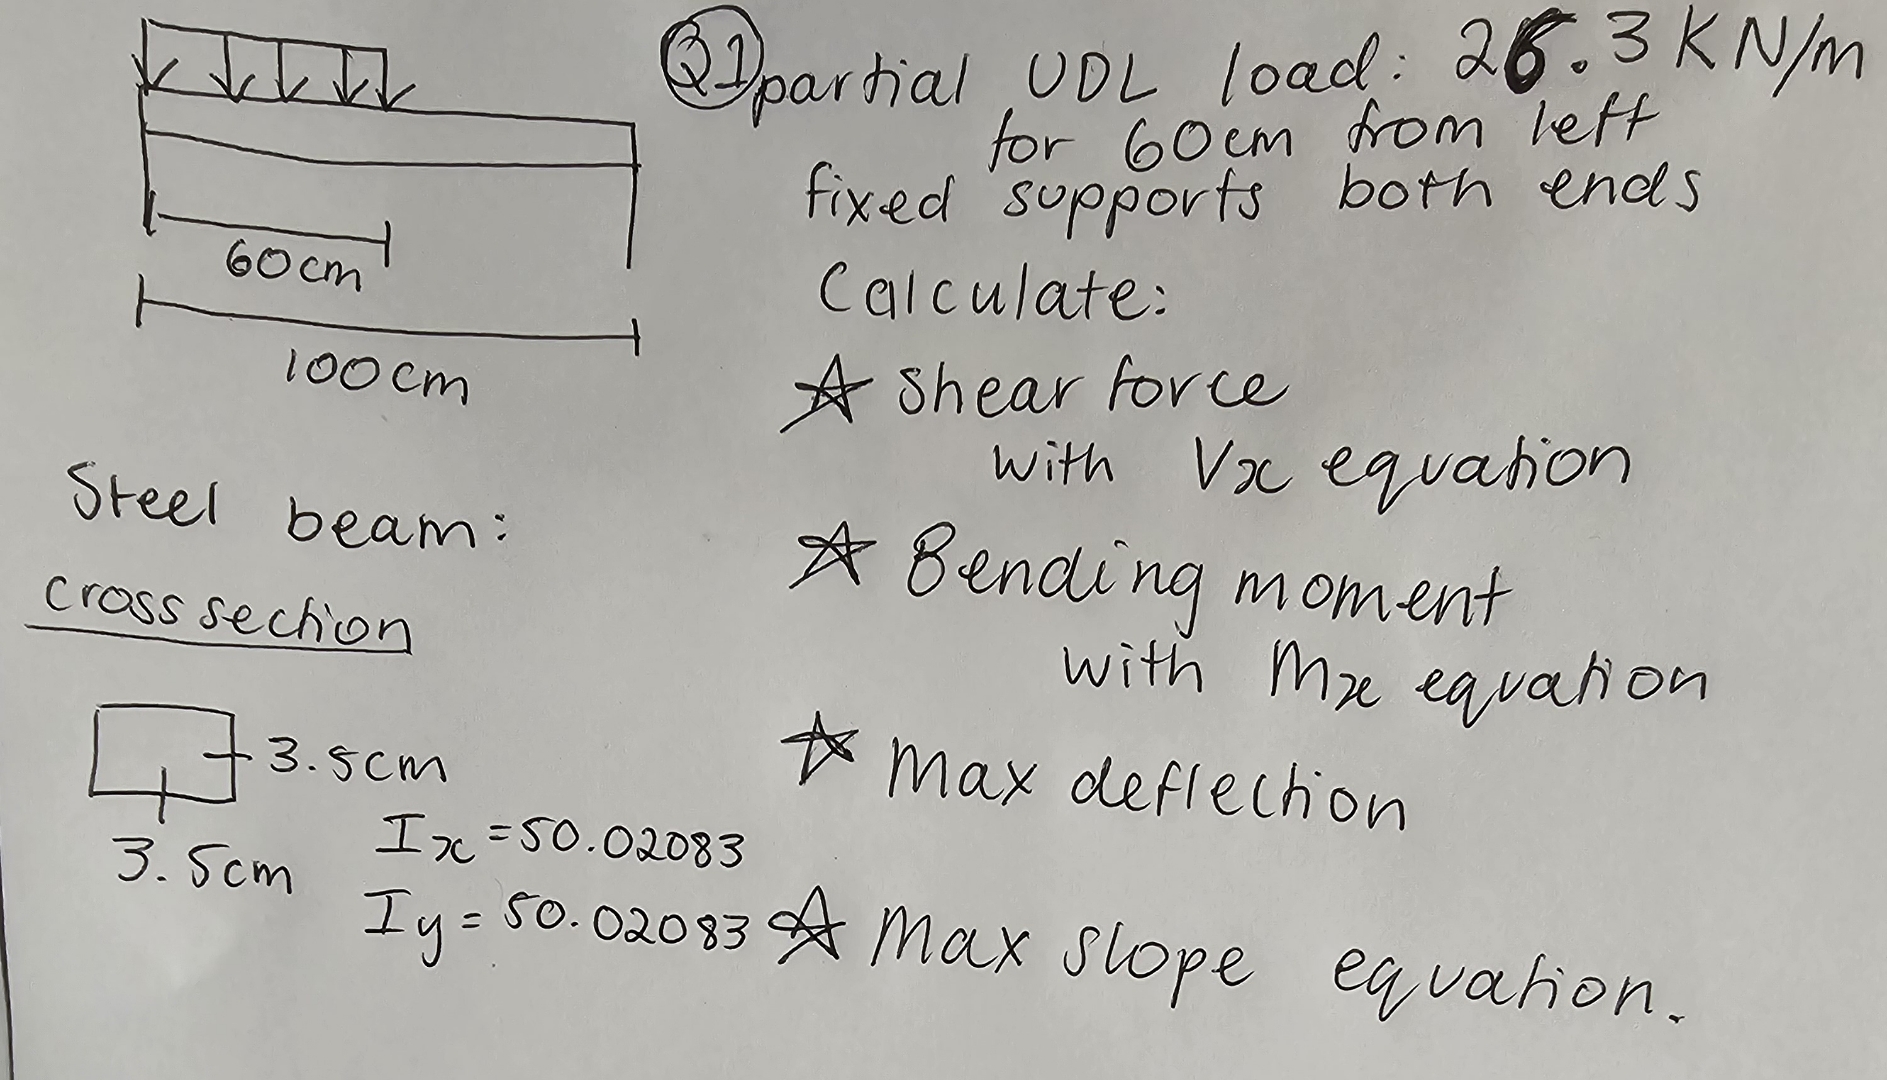 Q1 partial UDL load: 26.3 KN/m
for 60cm from left
fixed supports both ends
60cm
100cm
Calculate:
☆ Shear force
with Vx equation
Steel beam:
cross section
☆ Bending moment
with Mx equation
3.5cm
3.5cm
Ix = 50.02083
Iy = 50.02083
☆ Max deflection
☆ Max slope equation.